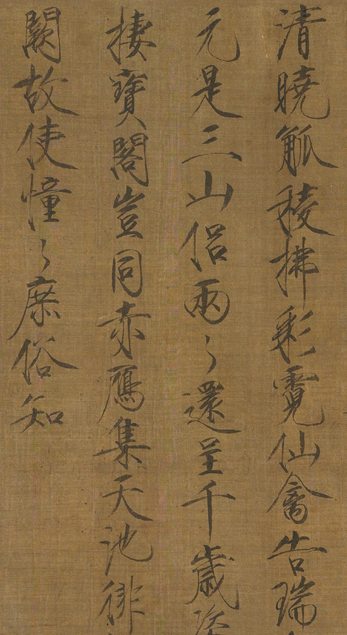 清曉觚稜拂彩霓仙禽告瑞
元是三山侶兩〻還呈千歲
棲寶閣豈同赤鴈集天池徘
闕故使憧〻庶俗知